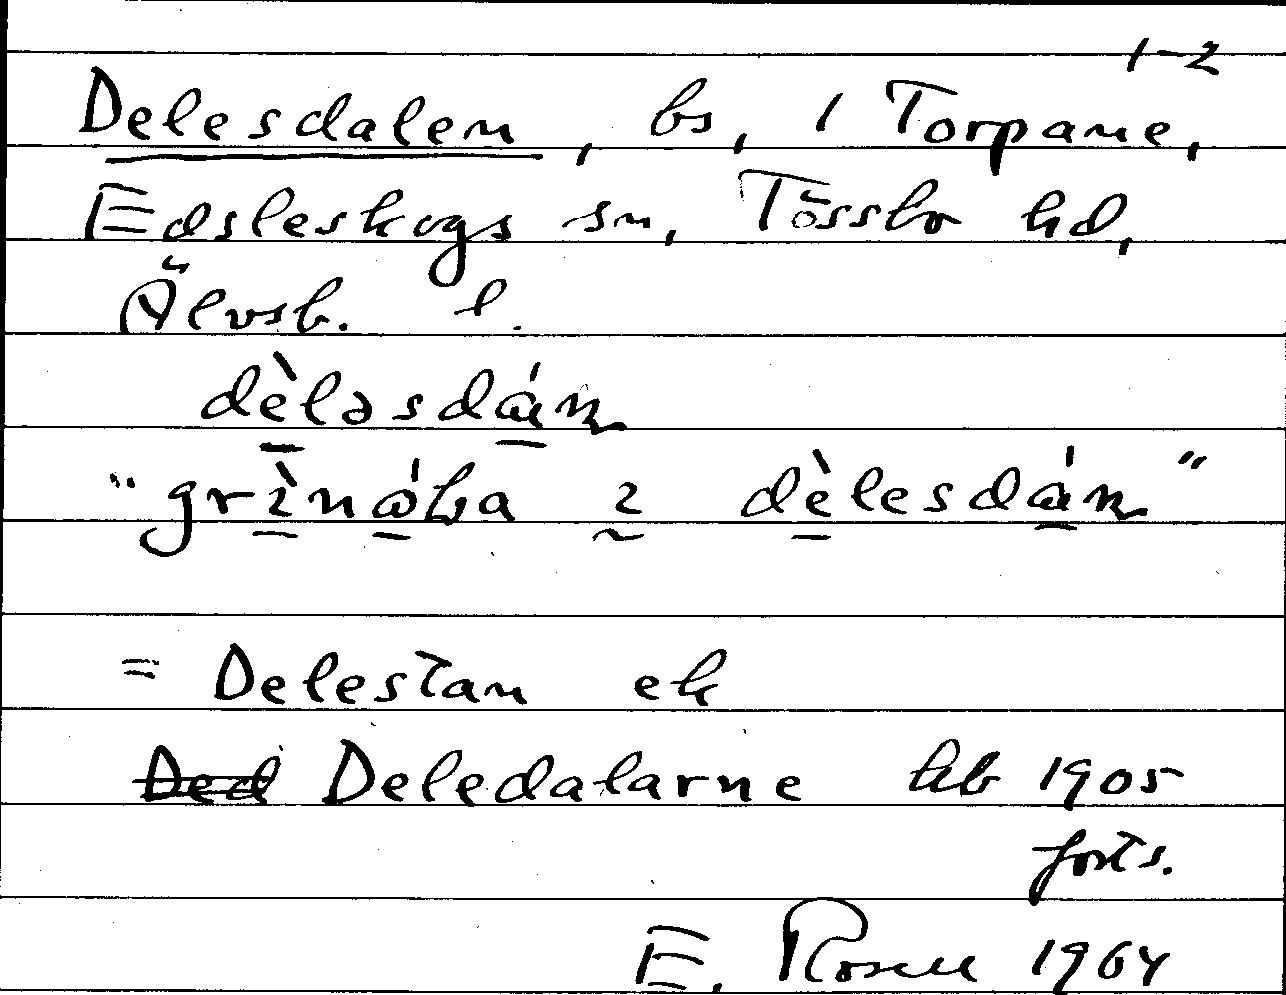 1-2
Delesdalen, bs, 1 Torpane,
Edsleskogs sn, Tössbo hd,
Älvsb. l.
dèləsdán
"grìnába i dèlesdán"
= Delestan ek
Ded Deledalarne hb 1905
forts.
E. Rosell 1964